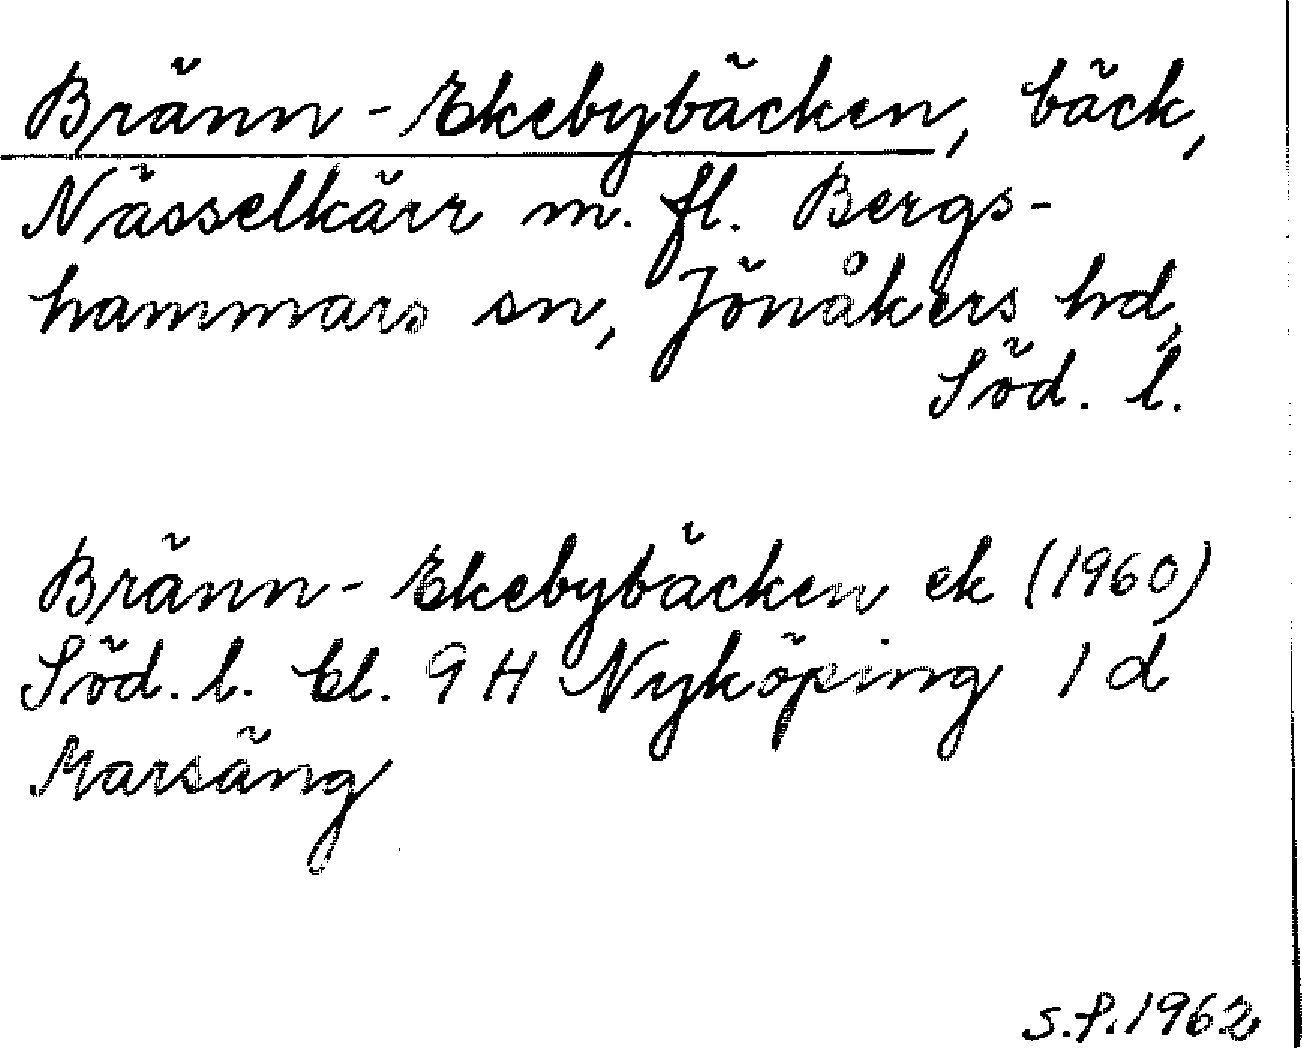 Bränn-Ekebybäcken, bäck,
Nässelkärr m. fl. Bergs-
hammars sn, Jönåkers hd,
Söd. l.
Bränn-Ekebybäcken ek (1960)
Söd. l. bl. 9 H Nyköping 1 d
Marsäng
S.P. 1962